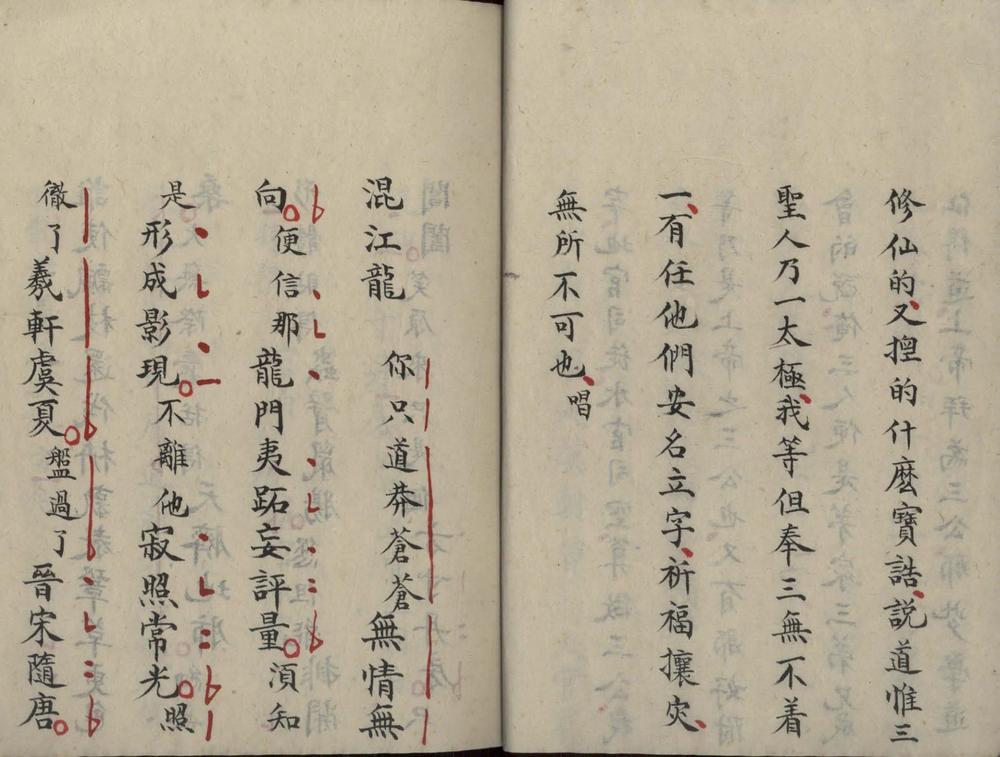 修仙的又捏的什麽寶誥說道惟三
聖人乃一太極我等但奉三無不着
一有任他們安名立字祈福攘灾
無所不可也唱
混江龍 你只道莽蒼蒼無情無
向便信那龍門夷跖妄評量湏知
是形成影現不離他寂照常光照
徹了羲軒虞夏盤過了晉宋隨唐